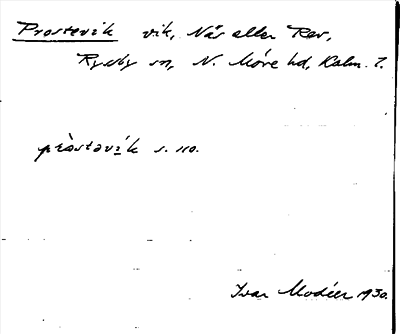 Prostevik vik, Når eller Rev,
Ryssby sn, N. Möre hd, Kalm. l.
pròstavi̱k s. 110.
Ivar Modéer 1930.